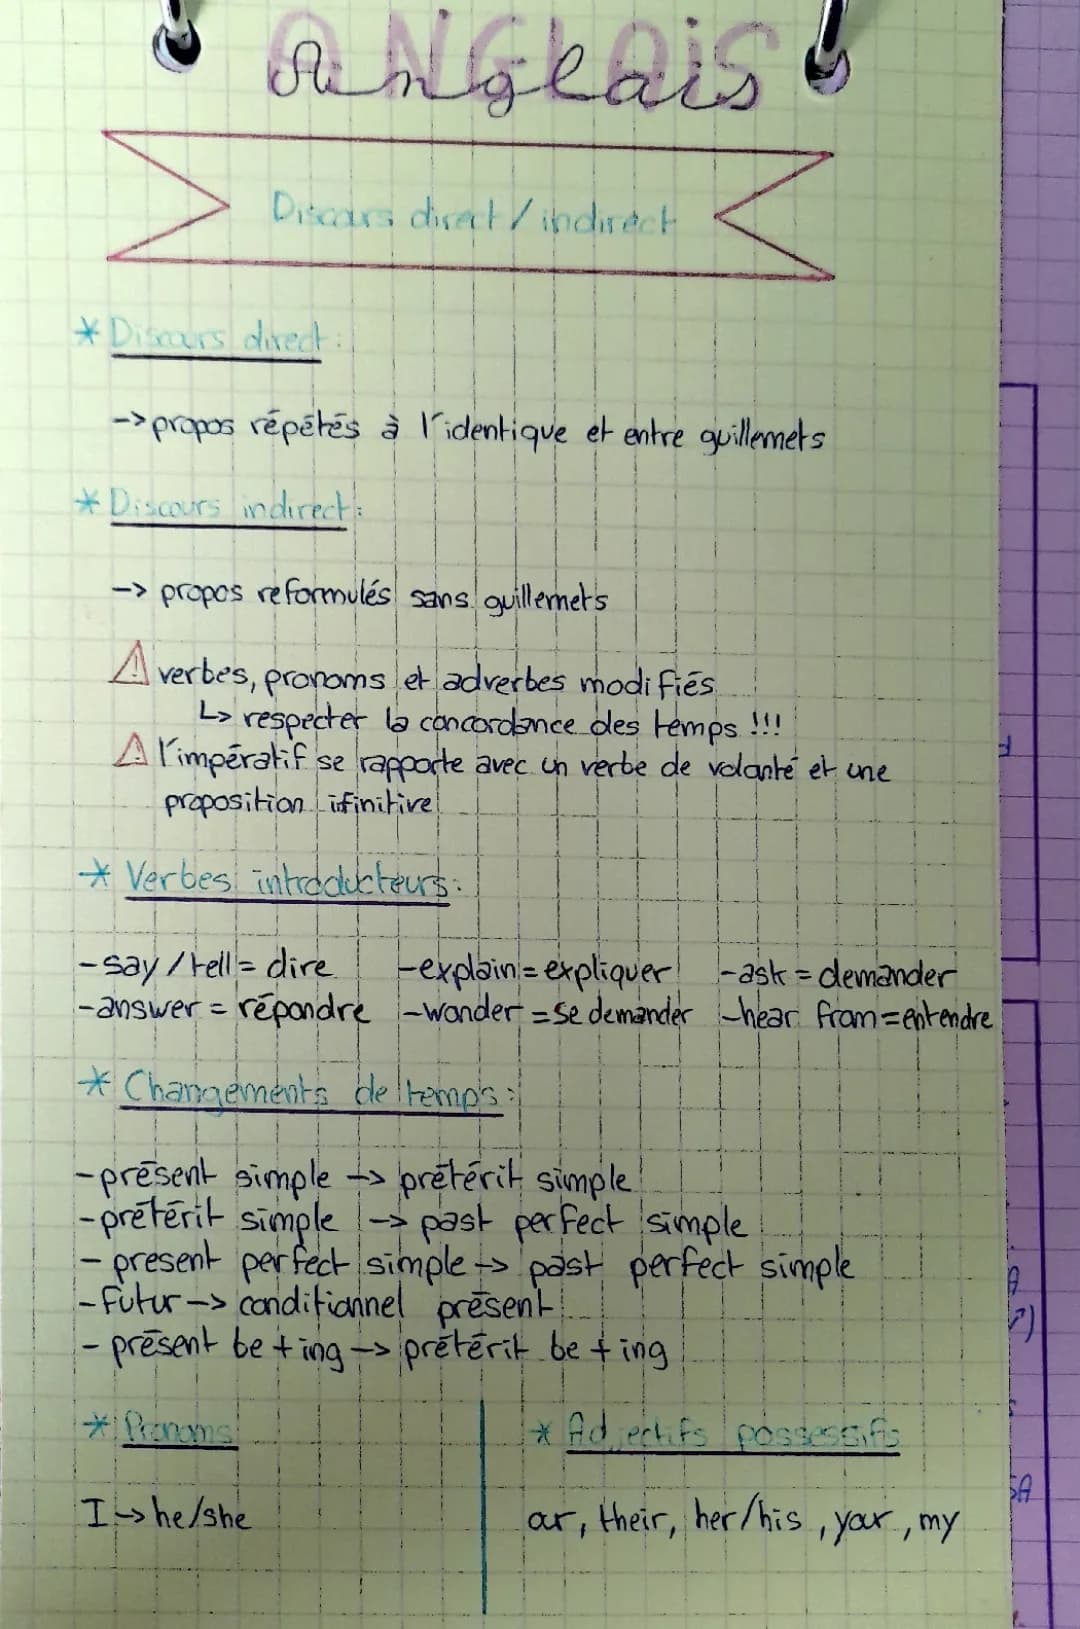 Anglais
Discours direct / indirect
* Discours direct :
-> propos répétés à l'identique et entre guillemets
* Discours indirect :
-> propos reformulés sans guillemets
⚠ verbes, pronoms et adverbes modifiés
↳ respecter la concordance des temps !!!
⚠ l'impératif se rapporte avec un verbe de volonté et une
proposition ifinitive
* Verbes introducteurs :
- say / tell = dire - explain = expliquer - ask = demander
- answer = répondre - wonder = se demander - hear from = entendre
* Changements de temps :
- présent simple -> prétérit simple
- prétérit simple -> past perfect simple
- present perfect simple -> past perfect simple
- futur -> conditionnel présent
- présent be + ing -> prétérit be + ing
* Pronoms
I -> he/she
* Adjectifs possessifs
our, their, her/his, your, my